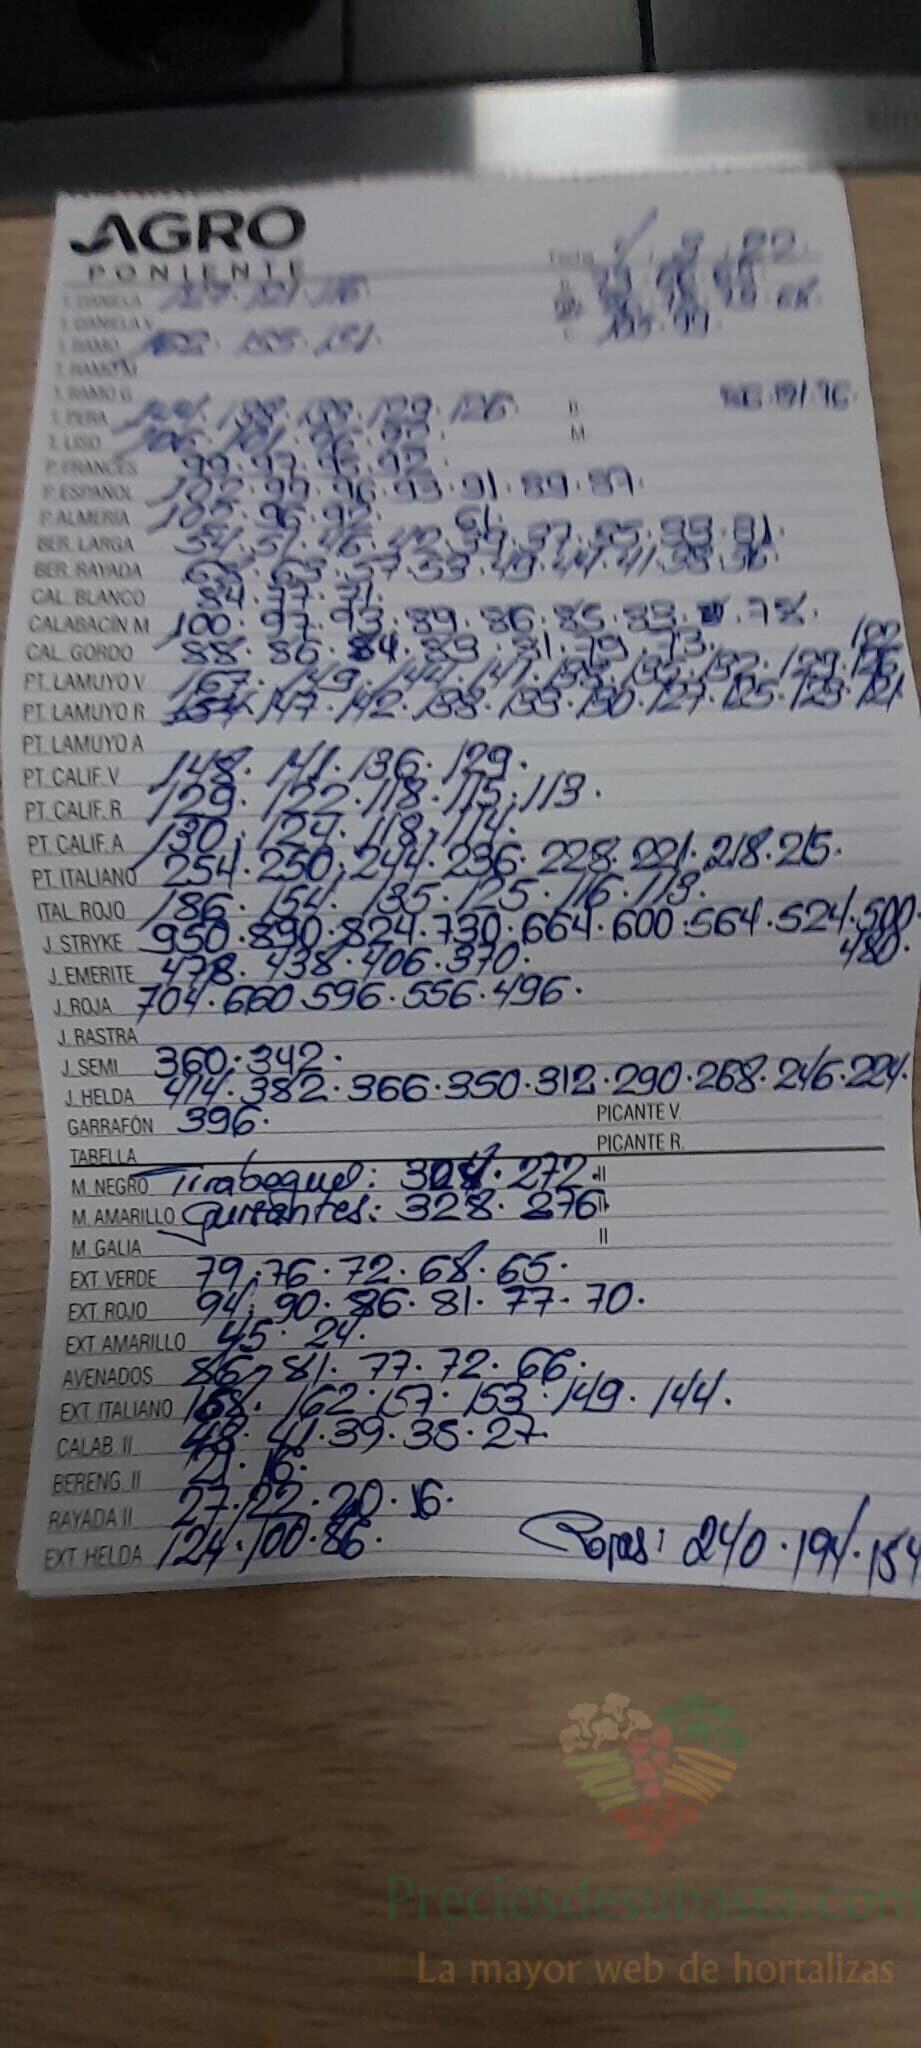 AGRO
PONIENTE
Fecha
T. DANELA 127. 121. 116.
T. DANELA V.
T. RAMO 151.
T. RAMO M
T. RAMO G
T. PERA 129. 126.
T. LISO 106. 101. 96. 92. M
P. FRANCES 99. 97. 95. 92.
P. ESPAÑOL 102. 99. 96. 93. 91. 89. 87.
P. ALMERIA 102. 96. 92. 61.
BER. LARGA 54. 51. 46. 42. 39. 37. 35. 33. 31.
BER. RAYADA 63. 57. 53. 49. 44. 41. 38. 36.
CAL. BLANCO 84. 77. 71.
CALABACÍN M 100. 97. 93. 89. 86. 85. 83. 78.
CAL. GORDO 88. 86. 84. 83. 81. 79. 73.
PT. LAMUYO V 167. 149. 144. 141. 135. 132. 129. 126
PT. LAMUYO R 154. 147. 142. 138. 133. 130. 127. 125. 123. 121
PT. LAMUYO A
PT. CALIF. V 148. 141. 136. 129.
PT. CALIF. R 129. 122. 118. 115. 113.
PT. CALIF. A 130. 124. 118. 114.
PT. ITALIANO 254. 250. 244. 236. 228. 221. 218. 215.
ITAL. ROJO 186. 154. 135. 125. 116. 113.
J. STRYKE 950. 890. 824. 730. 664. 600. 564. 524. 500
480.
J. EMERITE 478. 438. 406. 370.
J. ROJA 704. 660. 596. 556. 496.
J. RASTRA
J. SEMI 360. 342.
J. HELDA 414. 382. 366. 350. 312. 290. 268. 246. 224.
GARRAFÓN 396. PICANTE V.
TABELLA PICANTE R.
M. NEGRO Tirabeques: 272. II
M. AMARILLO Guisantes: 328. 276 II
M. GALIA II
EXT. VERDE 79. 76. 72. 68. 65.
EXT. ROJO 94. 90. 86. 81. 77. 70.
EXT. AMARILLO 45. 24.
AVENADOS 86. 81. 77. 72. 66.
EXT. ITALIANO 168. 162. 157. 153. 149. 144.
CALAB. II 48. 41. 39. 35. 27.
BERENG. II 21. 16.
RAYADA II 27. 22. 20. 16.
EXT. HELDA 124. 100. 86. Rojas: 240. 194. 154
Preciosdesubasta.com
La mayor web de hortalizas